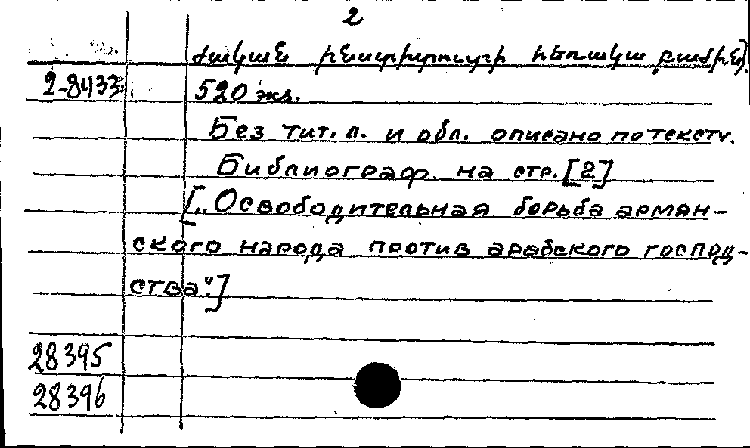 2
ժական ինստիտուտի հեռակա բաժին].
2-8433 520 экз.
Без тит. л. и обл. описано по тексту.
Библиограф. на стр. [2]
[„Освободительная борьба армян-
ского народа против арабского господ-
ства".]
28395
28396